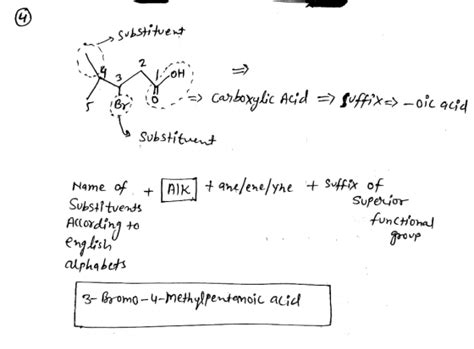 ④
Substituent
4 3 2 1 OH
5 Br O
⇒
⇒ Carboxylic Acid ⇒ Suffix ⇒ -oic acid
Substituent
Name of + Alk + ane/ene/yne + Suffix of
Substituents Superior
According to functional
english group
alphabets
3-Bromo-4-Methylpentanoic acid